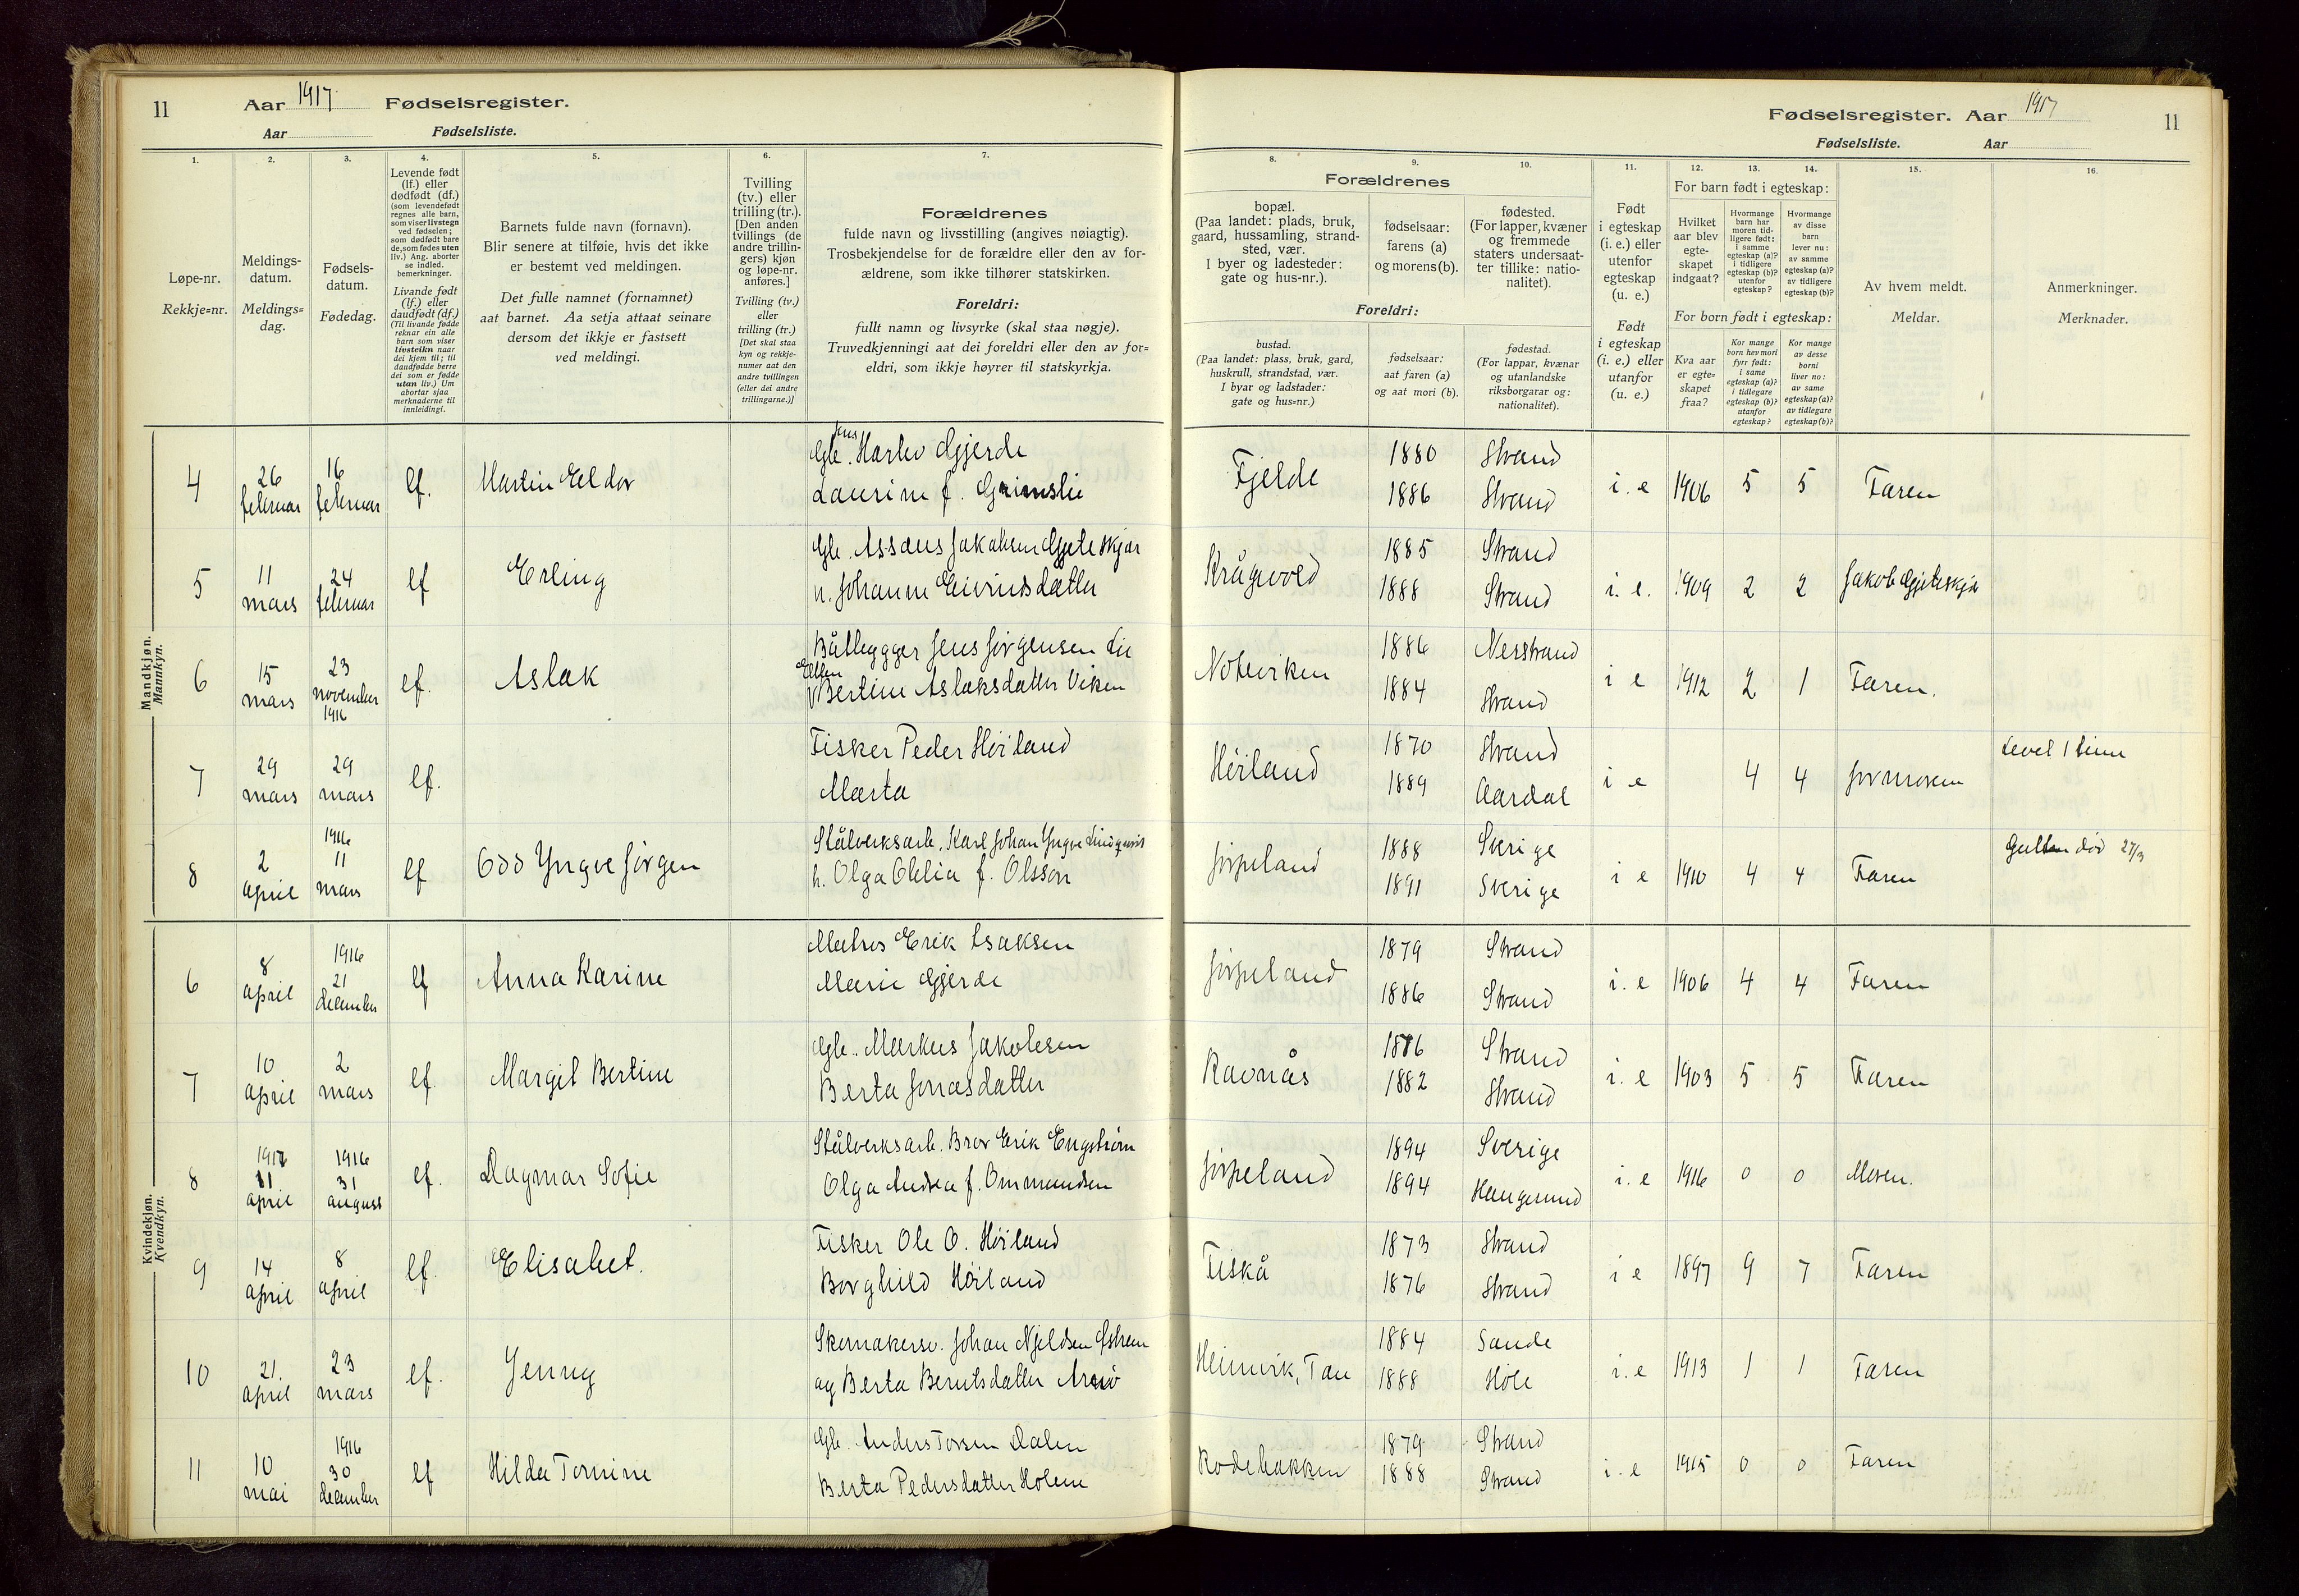 11
Aar 1917 Fødselsregister.
Aar Fødselsliste.
1.
2.
3.
4.
5.
6.
7.
Løpe-nr.
Rekkje=nr.
Meldings-
datum.
Meldings=
dag.
Fødsels-
datum.
Fødedag.
Levende født
(lf.) eller
dødfødt (df.)
(som levendefødt
regnes alle barn,
som viser livstegn
ved fødselen;
som dødfødt bare
de, som fødes uten
liv.) Ang. aborter
se indled.
bemerkninger.
Livande født
(lf.) eller
daudfødt (df.)
(Til livande fødde
reknar ein alle
barn som viser
livsteikn naar
dei kjem til; til
daudfødde berre
dei som er fødde
utan liv.) Um
abortar sjaa
merknaderne til
innleidingi.
Barnets fulde navn (fornavn).
Blir senere at tilføie, hvis det ikke
er bestemt ved meldingen.
Det fulle namnet (fornamnet)
aat barnet. Aa setja attaat seinare
dersom det ikkje er fastsett
ved meldingi.
Tvilling
(tv.) eller
trilling (tr.).
[Den anden
tvillings (de
andre trillin-
gers) kjøn
og løpe-nr.
anføres.]
Tvilling (tv.)
eller
trilling (tr.)
[Det skal staa
kyn og rekkje-
numer aat den
andre tvillingen
(eller dei andre
trillingarne.)]
Forældrenes
fulde navn og livsstilling (angives nøiagtig).
Trosbekjendelse for de forældre eller den av for-
ældrene, som ikke tilhører statskirken.
Foreldri:
fullt namn og livsyrke (skal staa nøgje).
Truvedkjenningi aat dei foreldri eller den av for=
eldri, som ikkje høyrer til statskyrkja.
Mandkjøn.
Mannkyn.
4
26
februar
16
februar
lf.
Martin Eldor
Jens
Gb. Harlev Gjerde
Laurine f. Grimslie
5
11
mars
24
februar
lf
Erling
Gb. Assaus Jakobsen Gjeteskjær
h. Johanne Eivindsdatter
6
15
mars
23
november
1916
lf.
Aslak
Båtbygger Jens Jørgensen Lie
Ellen
Bertine Aslaksdatter Viken
7
29
mars
29
mars
lf.
Fisker Peder Høiland
Marta
8
2
april
1916
11
mars
lf
Odd Yngve Jørgen
Stålverksarb. Karl Johan Yngve Lindqvist
h. Olga Otelia f. Olsson
Kvindekjøn.
Kvendkyn.
6
8
april
1916
21
december
lf
Anna Karine
Matros Erik Isaksen
Marie Gjerde
7
10
april
2
mars
lf.
Margit Bertine
Gb. Markus Jakobsen
Berta Jonasdatter
8
1917
11
april
1916
31
august
lf.
Dagmar Sofie
Stålverksarb. Bror Erik Engström
Olga Andrea f. Ommundsen
9
14
april
8
april
lf.
Elisabet.
Fisker Ole O. Høiland
Borghild Høiland
10
21.
april
23
mars
lf.
Jenny
Skomakersv. Johan Njeldsen Østrem
og Berta Berntsdatter Arnø
11
10
mai
1916
30
december
lf
Hilda Tomine
Gb. Anders Torsen Dalen
Berta Pedersdatter Holene
Fødselsregister. Aar 1917
Fødselsliste. Aar
11
8.
9.
10.
11.
12.
13.
14.
15.
16.
Forældrenes
bopæl.
(Paa landet: plads, bruk,
gaard, hussamling, strand-
sted, vær.
I byer og ladesteder:
gate og hus-nr.).
fødselsaar:
farens (a)
og morens (b).
fødested.
(For lapper, kvæner
og fremmede
staters undersaat-
ter tillike: natio-
nalitet).
Foreldri:
bustad.
(Paa landet: plass, bruk, gard,
huskrull, strandstad, vær.
I byar og ladstader:
gate og hus=nr.)
fødselsaar:
aat faren (a)
og aat mori (b).
fødestad.
(For lappar, kvænar
og utanlandske
riksborgarar og:
nationalitet).
Født
i egteskap
(i. e.) eller
utenfor
egteskap
(u. e.)
Født
i egteskap
(i. e.) eller
utanfor
(u. e.)
For barn født i egteskap:
Hvilket
aar blev
egte-
skapet
indgaat?
Hvormange
barn har
moren tid-
ligere født:
i samme
egteskap (a)?
i tidligere
egteskap (b)?
utenfor
egteskap?
Hvormange
av disse
barn
lever nu:
av samme
egteskap (a)?
av tidligere
egteskap (b)?
For born født i egteskap:
Kva aar
er egte=
skapet
fraa?
Kor mange
born hev mori
fyrr født:
i same
egteskap (a)?
i tidlegare
egteskap (b)?
utanfor
egteskap?
Kor mange
av desse
borni
liver no:
av same
egteskap (a)?
av tidlegare
egteskap (b)?
Av hvem meldt.
Meldar.
Anmerkninger.
Merknader.
Fjelde
1880
1886
Strand
Strand
i. e
1906
5
5
Faren
Krågevold
1885
1888
Strand
Strand
i. e.
1909
2
2
Jakob Gjeteskjær
Notevirken
1886
1884
Nerstrand
Strand
i e
1912
2
1
Faren.
Høiland
1870
1889
Strand
Aardal
i e
4
4
Jormoren
Levet 1 time
Jørpeland
1888
1891
Sverige
Sverige
i e
1910
4
4
Faren
Gutten død 27/3
Jørpeland
1879
1886
Strand
Strand
i. e
1906
4
4
Faren
Ravnås
1876
1882
Strand
Strand
i. e
1903
5
5
Faren
Jørpeland
1894
1894
Sverige
Haugesund
i. e
1916
0
0
Moren.
Fiskå
1873
1876
Strand
Strand
i e
1897
9
7
Faren
Heimvik, Tau
1884
1888
Sande
Høle
i. e
1913
1
1
Faren
Rodebakken
1879
1888
Strand
Strand
i. e
1915
0
0
Faren